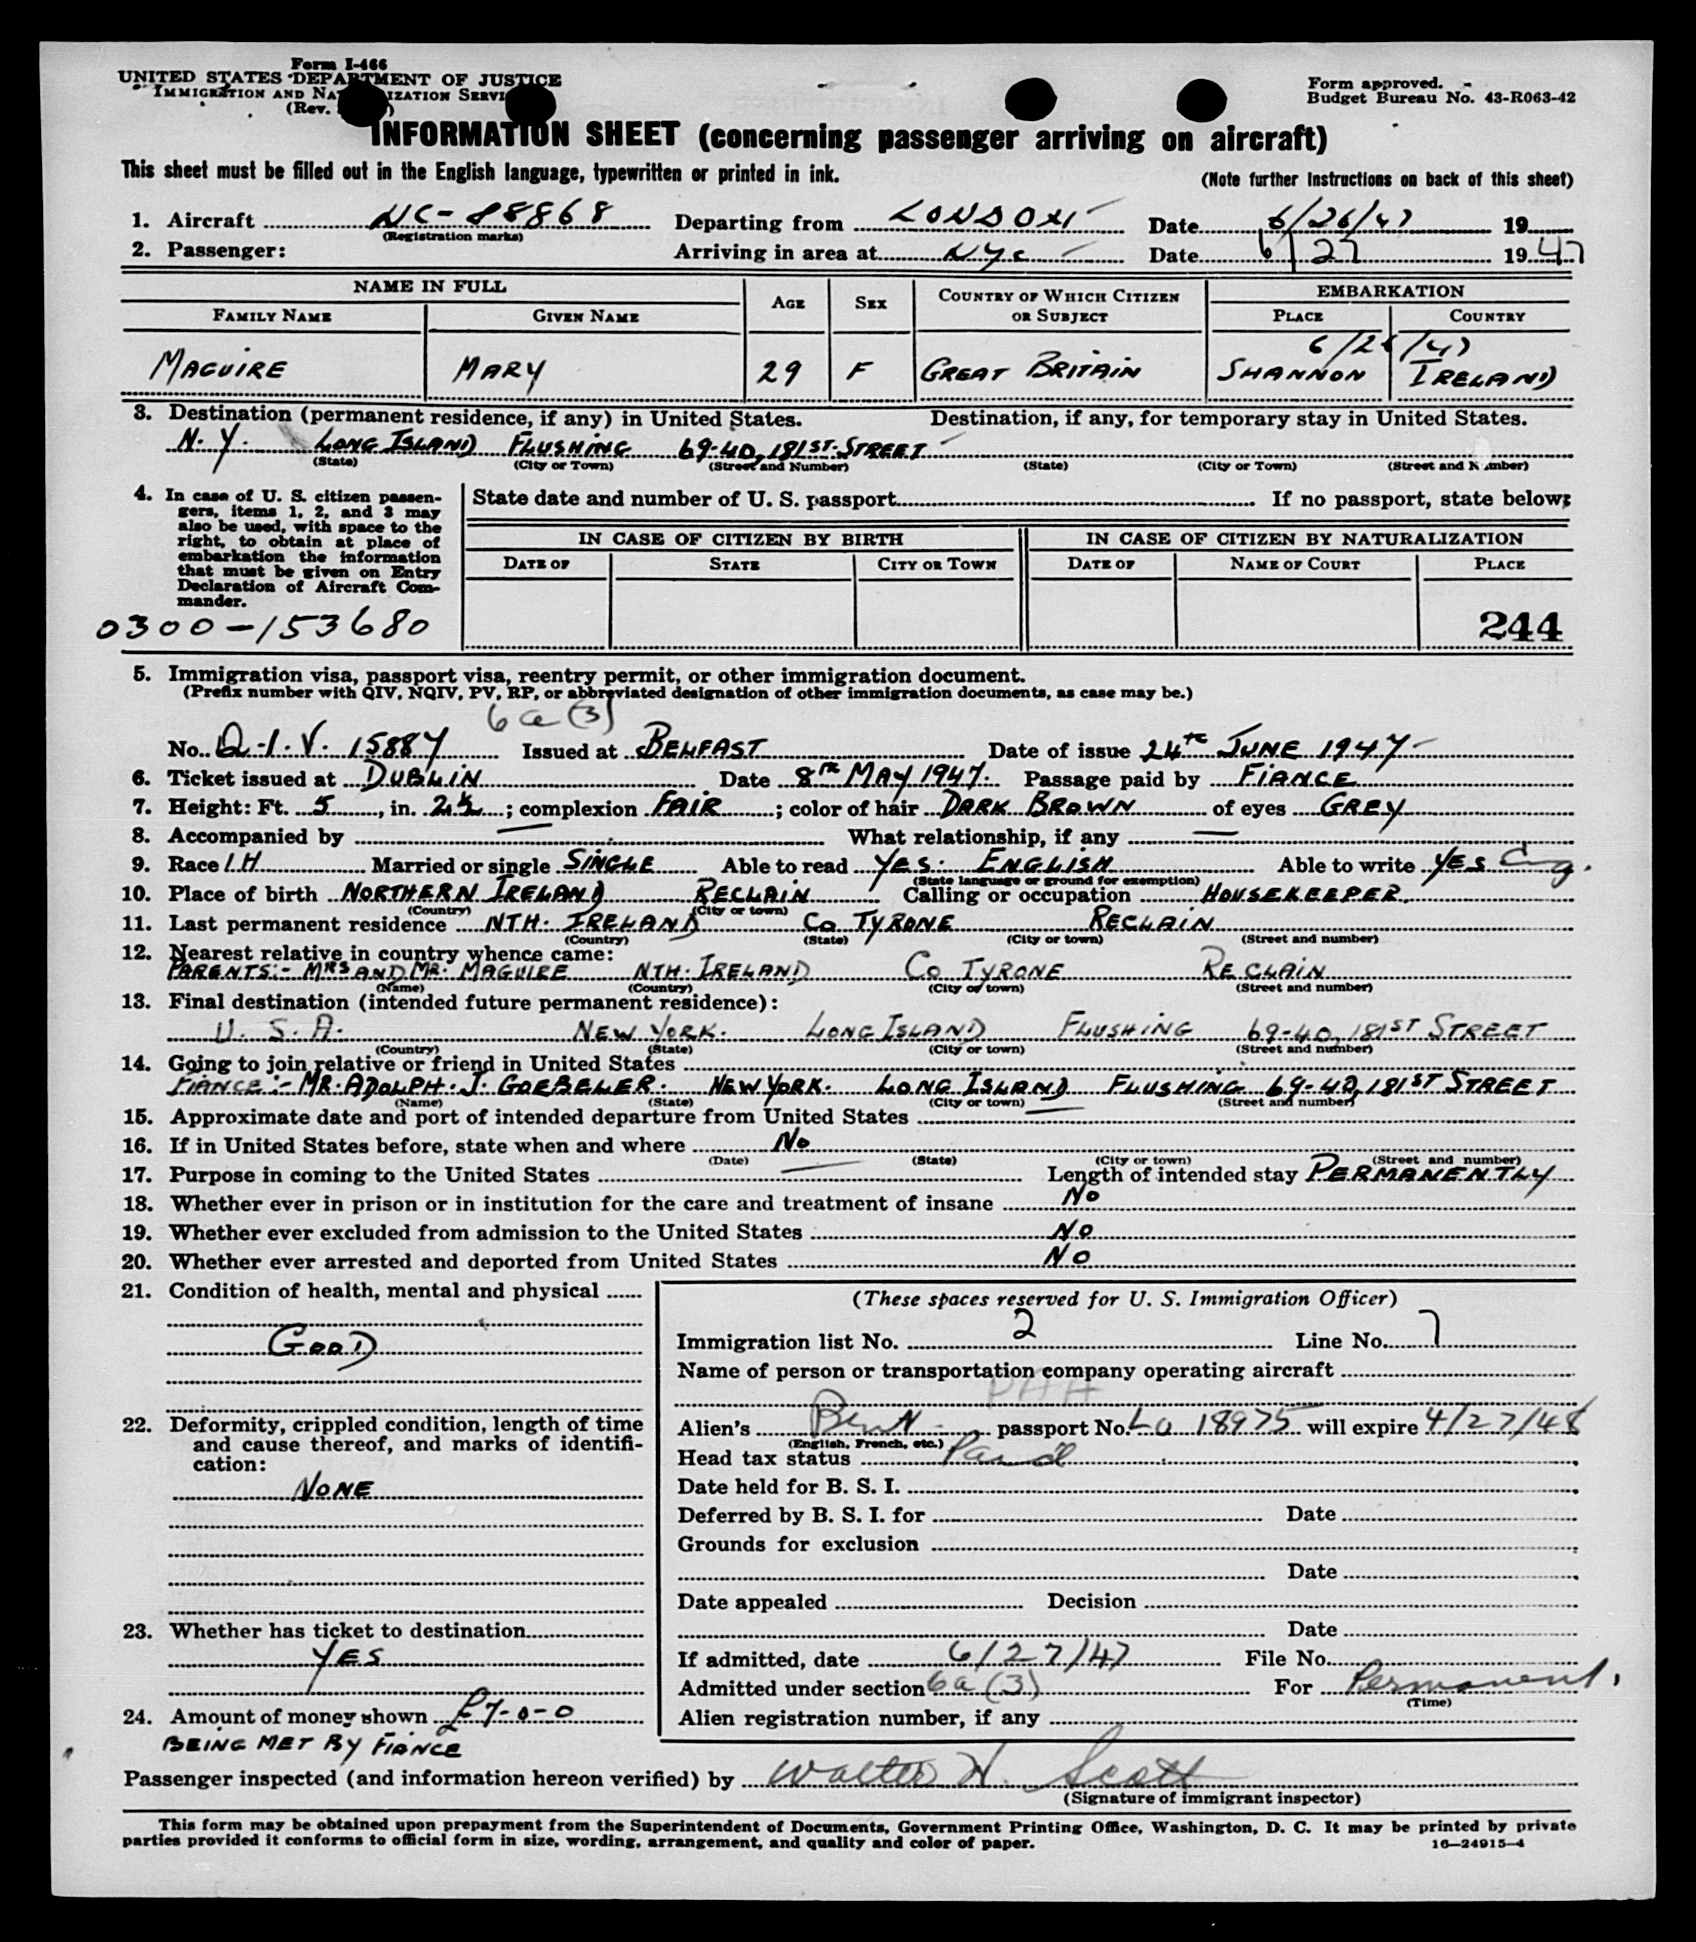 Form I-466
UNITED STATES DEPARTMENT OF JUSTICE
IMMIGRATION AND NATURALIZATION SERVICE
(Rev. )
Form approved.
Budget Bureau No. 43-R063-42
INFORMATION SHEET (concerning passenger arriving on aircraft)
This sheet must be filled out in the English language, typewritten or printed in ink.
(Note further instructions on back of this sheet)
1. Aircraft NC-88868 Departing from LONDON Date 6/26/47 19
(Registration marks)
2. Passenger: Arriving in area at NYC Date 6/27 1947
NAME IN FULL AGE SEX COUNTRY OF WHICH CITIZEN OR SUBJECT EMBARKATION
FAMILY NAME GIVEN NAME PLACE COUNTRY
MAGUIRE MARY 29 F GREAT BRITAIN SHANNON IRELAND
3. Destination (permanent residence, if any) in United States. Destination, if any, for temporary stay in United States.
N.Y. LONG ISLAND FLUSHING 69-40, 181ST STREET
(State) (City or Town) (Street and Number) (State) (City or Town) (Street and Number)
4. In case of U. S. citizen passen-
gers, items 1, 2, and 3 may
also be used, with space to the
right, to obtain at place of
embarkation the information
that must be given on Entry
Declaration of Aircraft Com-
mander.
0300-153680
State date and number of U. S. passport If no passport, state below:
IN CASE OF CITIZEN BY BIRTH IN CASE OF CITIZEN BY NATURALIZATION
DATE OF STATE CITY OR TOWN DATE OF NAME OF COURT PLACE
244
5. Immigration visa, passport visa, reentry permit, or other immigration document.
(Prefix number with QIV, NQIV, PV, RP, or abbreviated designation of other immigration documents, as case may be.)
6a(3)
No. Q.I.V. 15884 Issued at BELFAST Date of issue 24th JUNE 1947
6. Ticket issued at DUBLIN Date 8TH MAY 1947. Passage paid by FIANCE
7. Height: Ft. 5, in. 2½; complexion FAIR; color of hair DARK BROWN of eyes GREY
8. Accompanied by — What relationship, if any —
9. Race IH Married or single SINGLE Able to read YES. ENGLISH Able to write YES Eng.
(State language or ground for exemption)
10. Place of birth NORTHERN IRELAND RECLAIN Calling or occupation HOUSEKEEPER
(Country) (City or town)
11. Last permanent residence NTH. IRELAND CO TYRONE RECLAIN
(Country) (State) (City or town) (Street and number)
12. Nearest relative in country whence came:
PARENTS:- MRS AND MR. MAGUIRE NTH. IRELAND CO TYRONE RECLAIN
(Name) (Country) (City or town) (Street and number)
13. Final destination (intended future permanent residence):
U. S. A. NEW YORK. LONG ISLAND FLUSHING 69-40, 181ST STREET
(Country) (State) (City or town) (Street and number)
14. Going to join relative or friend in United States
FIANCE:- MR. ADOLPH. J. GOEBELER. NEW YORK. LONG ISLAND FLUSHING 69-40, 181ST STREET
(Name) (State) (City or town) (Street and number)
15. Approximate date and port of intended departure from United States —
16. If in United States before, state when and where No
(Date) (State) (City or town) (Street and number)
17. Purpose in coming to the United States — Length of intended stay PERMANENTLY
18. Whether ever in prison or in institution for the care and treatment of insane No
19. Whether ever excluded from admission to the United States NO
20. Whether ever arrested and deported from United States NO
21. Condition of health, mental and physical
GOOD
22. Deformity, crippled condition, length of time
and cause thereof, and marks of identifi-
cation:
NONE
23. Whether has ticket to destination
YES
24. Amount of money shown £7-0-0
BEING MET BY FIANCE
(These spaces reserved for U. S. Immigration Officer)
Immigration list No. 2 Line No. 7
Name of person or transportation company operating aircraft
PAA
Alien's passport No. 18975 will expire 4/27/48
(English, French, etc.)
Head tax status Paid
Date held for B. S. I.
Deferred by B. S. I. for Date
Grounds for exclusion
Date
Date appealed Decision
Date
If admitted, date 6/27/47 File No.
Admitted under section 6a(3) For Permanent.
(Time)
Alien registration number, if any
Passenger inspected (and information hereon verified) by Walter H. Scott
(Signature of immigrant inspector)
This form may be obtained upon prepayment from the Superintendent of Documents, Government Printing Office, Washington, D. C. It may be printed by private
parties provided it conforms to official form in size, wording, arrangement, and quality and color of paper. 16—24915-4